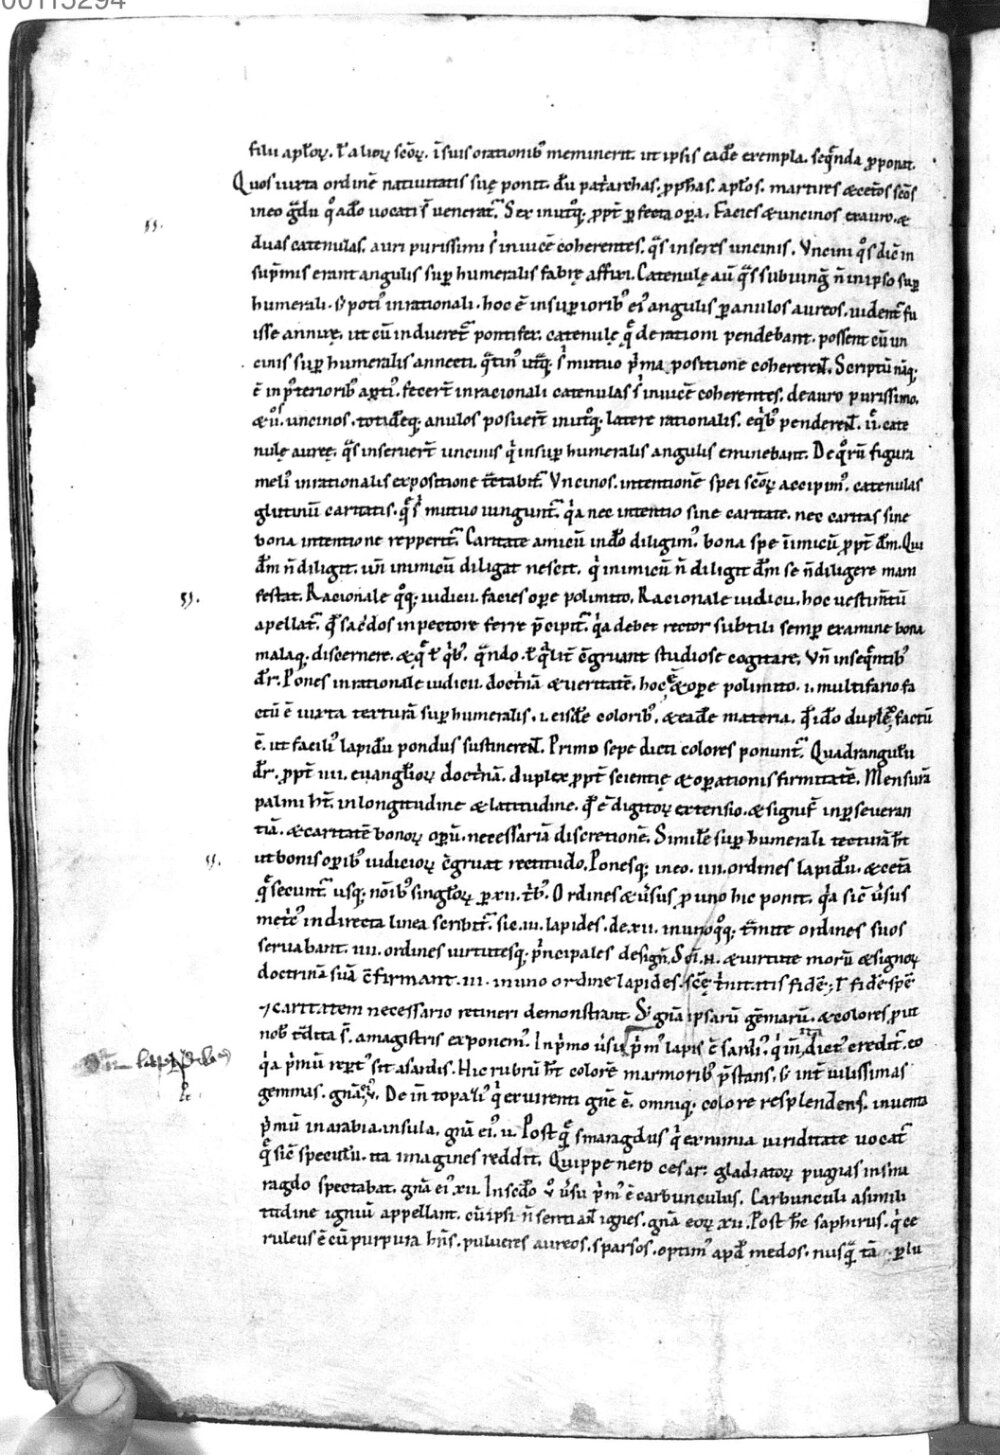 00115294
filii aplōꝝ. ł alioꝝ scōꝝ. ī suis orationibꝰ meminerit. ut ipsis eadē exempla. seq̄nda ꝓponat.
Quos iuxta ordinē natiuitatis suę ponit. dū pat̄archas. ꝓph̄as. aplōs. martires & cet̄os sc̄os
in eo gͣdu qͦ a dō uocati s̄ venerat̄. Sex in utͦqꝫ ꝓpt̄ ꝑfecta oꝑa. Facies & uncinos ex auro. &
§§.
duas catenulas. auri purissimi sͥ inuicē coherentes. qͣs inseres uncinis. Vncini qͦs dic̄ in
sup̄mis erant angulis suꝑ humeralis fabrę affixi. Catenulę aū qͣs subiunḡ n̄ in ipso suꝑ
humerali. s; potiꝰ in rationali. hoc ē in suꝑioribꝰ eiꝰ angulis ꝑ anulos aureos. uident̄ fu
isse annixę. ut cū indueret̄ pontifex. catenulę q̄ de rationi pendebant. possent cū un
cinis suꝑ humeralis annecti. qͣtinꝰ utͣqꝫ sͥ mutuo p̄ma positione coherer̄nt. Scriptū nāqꝫ
ē in pͦsterioribꝰ
fecer̄t in racionali catenulas sͥ inuicē coherentes. de auro purissimo.
& .ii. uncinos. totidēqꝫ anulos posuer̄t in utͦqꝫ latere rationalis. e qͥbꝰ pender̄nt .ii. cate
nulę aureę. qͣs inseruer̄t uncinis qͥ in suꝑ humeralis angulis eminebant. De qͦrū figura
meliꝰ in rationalis expositione tractabit̄. Vncinos. intentionē spei sc̄oꝝ accipimꝰ. catenulas
glutinū caritatis. q̄ sͥ mutuo iungunt̄. qͥa nec intentio sine caritate. nec caritas sine
bona intentione repperit̄. Caritate amicū in dō diligimꝰ. bona spe inimicū ꝓpt̄ dm̄. Qui
dm̄ n̄ diligit. un̄ inimicū diligat nescit. qͥ inimicū n̄ diligit dm̄ se n̄ diligere mani
§§.
festat. Racionale qͦqꝫ iudicii. facies oꝑe polimito. Racionale iudicii. hoc uestim̄tū
apellat̄. qd̄ sac̄dos in pectore ferre p̄cipit̄. qͥa debet rector subtili semꝑ examine bona
malaqꝫ discernere. & q̄ ł qͥbꝰ. qͣndo. ł qͣlit̄ c̄gruant studiose cogitare. Vn̄ in seq̄ntibꝰ
dr̄. Pones in rationale iudicii. doctͥnā & ueritatē. hoc ē & oꝑe polimito. i. multifario fa
ctū ē iuxta texturā suꝑ humeralis. i. eisdē coloribꝰ. & eadē materia. qd̄ idō duplex factū
ē. ut faciliꝰ lapidū pondus sustiner̄nt. Primo sepe dicti colores ponunt̄. Quadrangulū
dr̄. ꝓpt̄ .iiii. euanglīoꝝ doctͥnā. duplex ꝓpt̄ scientię & oꝑationis firmitatē. Mensurā
palmi h̄t. in longitudine & latitudine. qd̄ ē digitoꝝ extensio. & signif̄ in ꝑseueran
tiā. & caritatē bonoꝝ oꝑū. necessariā discretionē. Similē suꝑ humerali tecturā h̄t
§§.
ut bonis oꝑibꝰ iudicioꝝ c̄gruat rectitudo. Ponesqꝫ in eo .iiii. ordines lapidū. & cet̄a
q̄ secunt̄. usqꝫ noībꝰ singloꝝ ꝑ .xii. t̄bꝰ. Ordines & ūsus ꝓ uno hic ponit. qͥa sic̄ ūsus
met̄ꝰ in directa linea scribit̄. sic .iii. lapides. de .xii. in unoqͦqꝫ t̄mite ordines suos
seruabant. iiii. ordines uirtutesqꝫ pͥncipales design̄.
& uirtute morū & signoꝝ
doctrinā suā c̄firmant. iii. in uno ordine lapides. sc̄ę tͥnitatis fidē; ł fidē spē
⁊ caritatem necessario retineri demonstrant. S; gn̄a ipsarū gēmarū. & colores put
nob̄ tradita s̄. a magistris exponemꝰ. In pͥmo ūsu pͥmꝰ lapis ē sardiꝰ. qͥ inde dictꝰ credit̄. eo
De lapidibus
qͥa pͥmū repert̄ꝰ sit a sardis. Hic rubrū h̄t colorē marmoribꝰ p̄stans. s; int̄ uilissimas
gemmas. gn̄a eiꝰ .v. De in topaziꝰ qͥ ex uirenti gn̄e ē. omniqꝫ colore resplendens. inuenta
pͥmū in arabia. insula. gn̄a eiꝰ .ii. Post q̄ smaragdus qͥ ex nimia uiriditate uocat̄
qͥ sic̄ speculū. ita imagines reddit. Quippe nero cesar. gladiatoꝝ pugnas in sma
ragdo spectabat. gn̄a eiꝰ .xii. In sc̄do ꝟ ūsu pͥmꝰ ē carbunculus. Carbunculi a simili
tudine igniū appellant. cū ipsi n̄ sentiant ignes. gn̄a eoꝝ .xii. Post h̄c saphirus. qͥ ce
ruleus ē cū purpura hn̄s. pulueres aureos. sparsos. optimꝰ apd̄ medos. nusqͣ tā. ꝑ lu